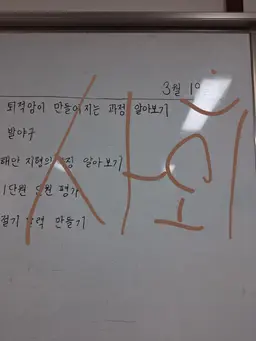 3월
퇴적암이 만들어지는 과정 알아보기
발야구
해안 지형의 알아보기
1단원 평가
절기 만들기
사회